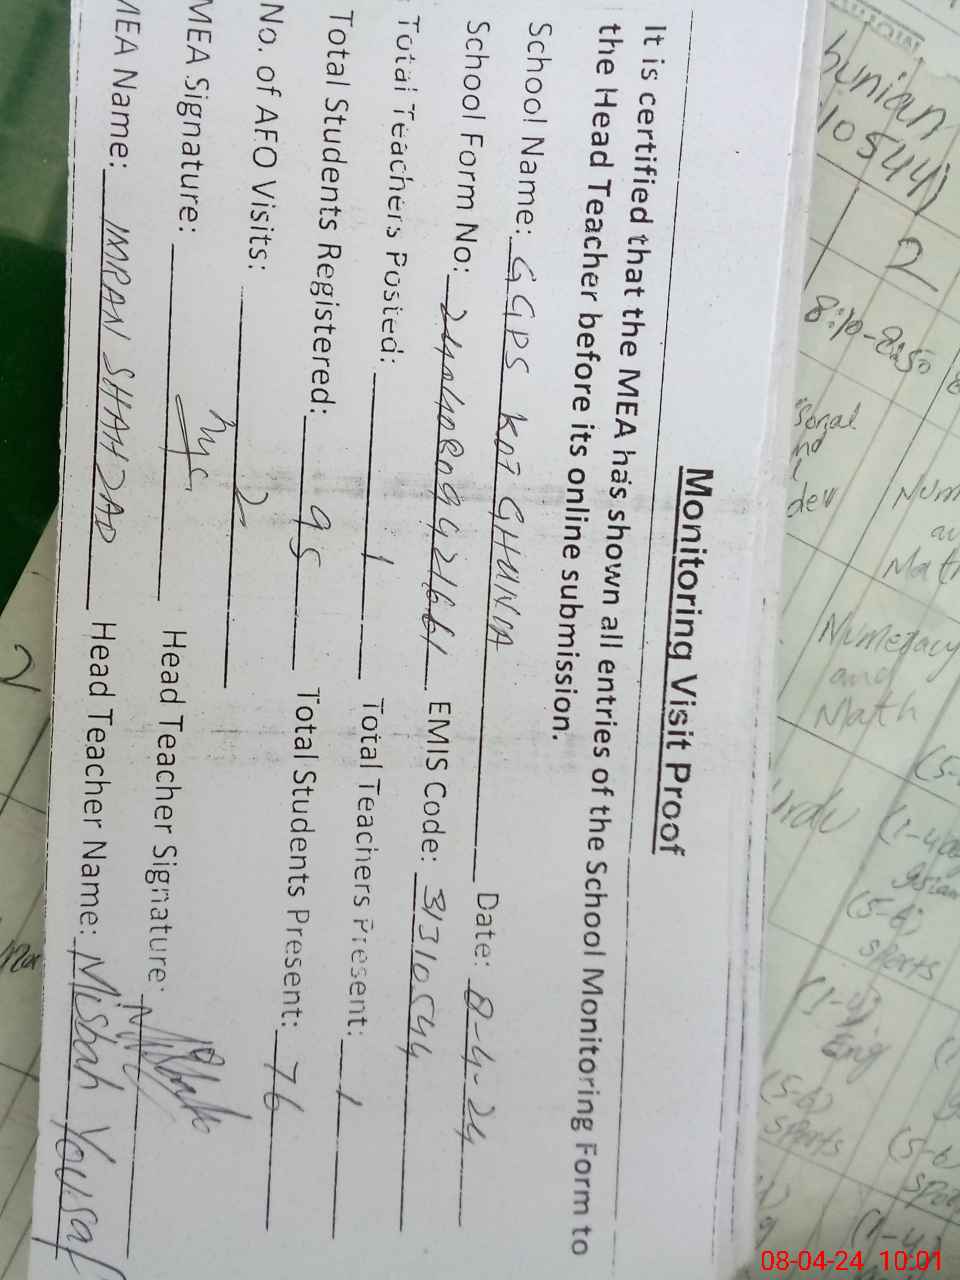 Monitoring Visit Proof
It is certified that the MEA has shown all entries of the School Monitoring Form to
the Head Teacher before its online submission.
School Name: GGPS KOT GHUNIA Date: 8-4-24
School Form No: EMIS Code: 31310544
Total Teachers Posted: 1 Total Teachers Present: 1
Total Students Registered: 95 Total Students Present: 76
No. of AFO Visits: 2
MEA Signature: Head Teacher Signature:
MEA Name: IMRAN SHAHZAD Head Teacher Name: Misbah Yousaf
10544)
2
8:10-8:50
dev
Num
Math
Numeracy
and
Math
Urdu
(5-6)
sports
(1-4)
Eng
(5-6)
sports
(5-6)
(1-4)
2
08-04-24 10:01